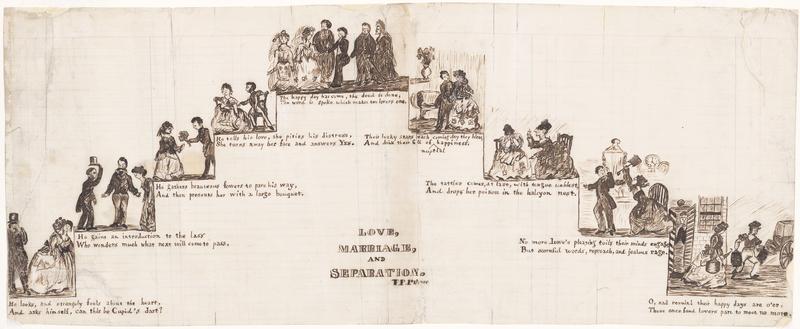 He looks, and strangely feels about the heart,
And asks himself, can this be Cupid's dart?
He gains an introduction to the lass
Who wonders much what next will come to pass.
He gathers beauteous flowers to pave his way,
And then presents her with a large bouquet.
He tells his love, she pities his distress,
She turns away her face and answers Yes.
The happy day has come, the deed is done,
The word is spoke which makes two lovers one.
Their lucky stars each coming day they bless
And drink their fill of happiness.
nuptial
The tattler comes, at last, with tongue unblest,
And drops her poison in the halcyon nest.
No more Love's pleasing toils their minds engage
But scornful words, reproach, and jealous rage.
O, sad reversal their happy days are o'er;
These once fond lovers part to meet no more.
LOVE,
MARRIAGE,
AND
SEPARATION.